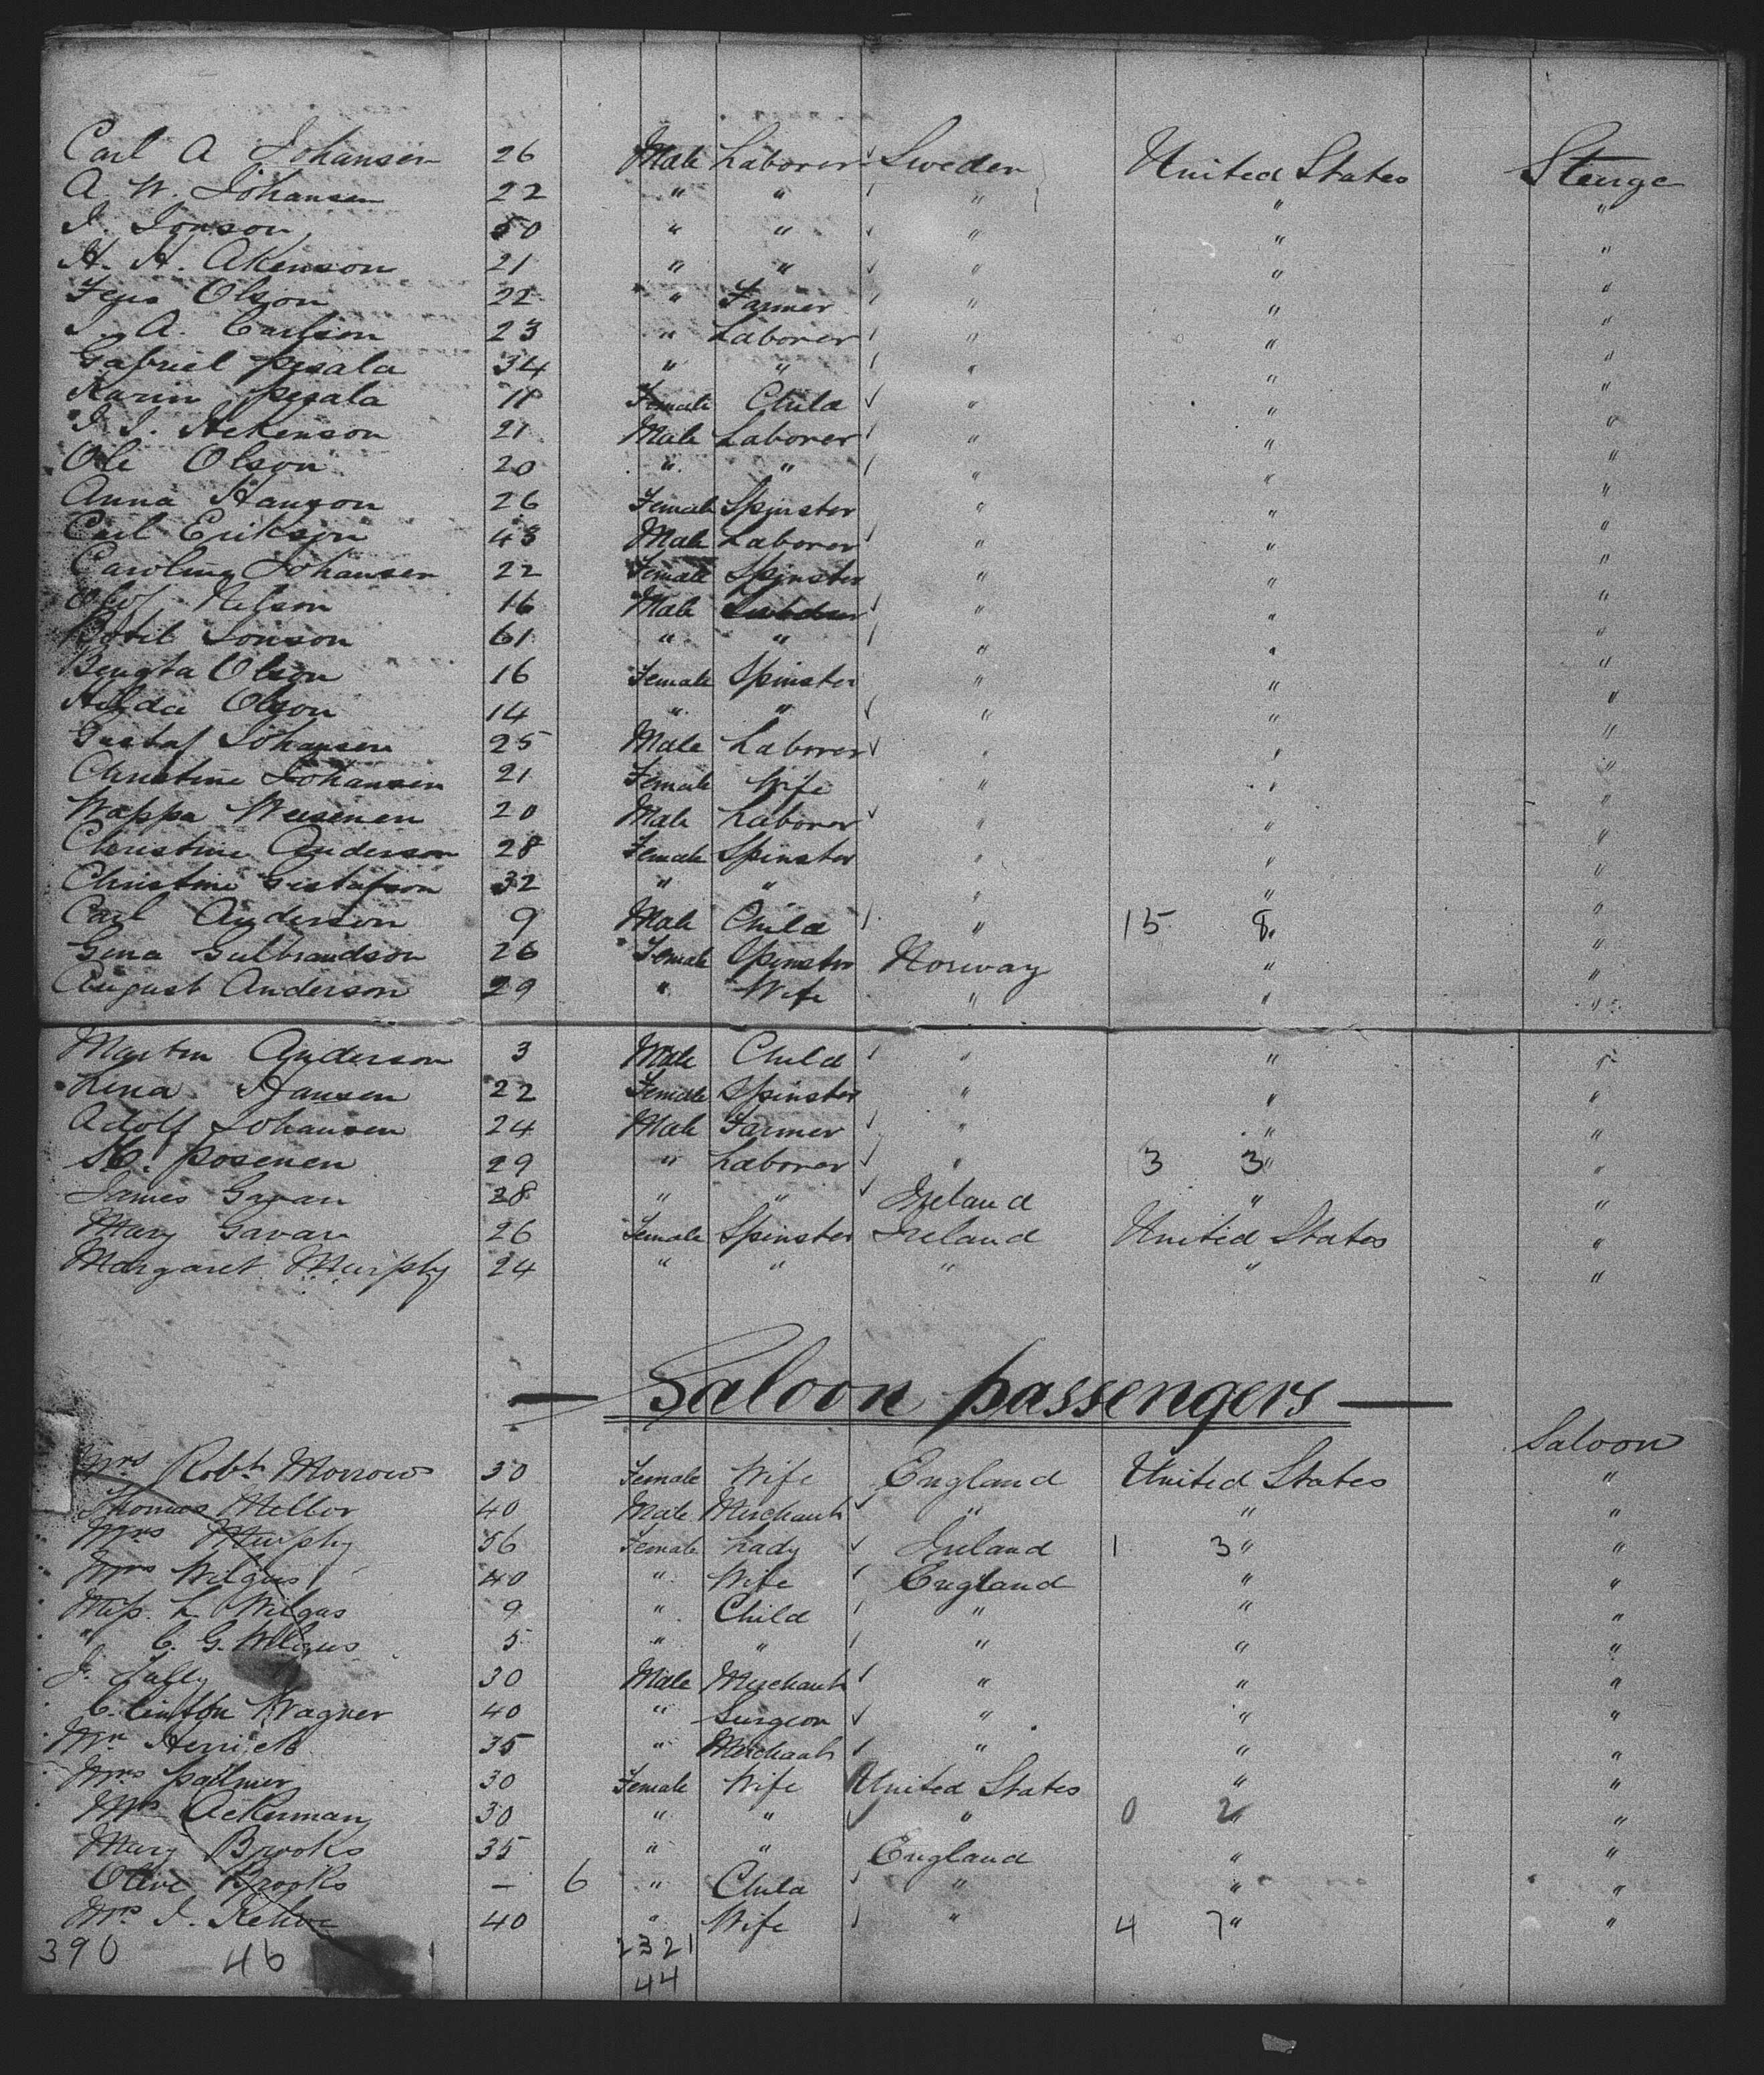 Carl A Johansen 26 Male Laborer Sweden United States Steerage
A W. Johansen 22 " " " " "
I. Jonson 50 " " " " "
H. H. Akenson 21 " " " " "
Jens Olson 22 " Farmer " " "
I. A. Carlson 23 " Laborer " " "
Gabriel Pesala 34 " " " " "
Karin Pesala 11 Female Child " " "
I. I. Hekenson 21 Male Laborer " " "
Ole Olson 20 " " " " "
Anna Hanson 26 Female Spinster " " "
Carl Erikson 43 Male Laborer " " "
Carolina Johansen 22 Female Spinster " " "
Olof Nelson 16 Male Laborer " " "
Botil Jonson 61 " " " " "
Bengta Olson 16 Female Spinster " " "
Hilda Olson 14 " " " " "
Gustaf Johansen 25 Male Laborer " " "
Christine Johansen 21 Female Wife " " "
Wappa Weisenen 20 Male Laborer " " "
Christine Anderson 28 Female Spinster " " "
Christine Gustafson 32 " " " " "
Carl Anderson 9 Male Child " 15 8 "
Gena Gulbrandson 26 Female Spinster Norway " "
August Anderson 29 " Wife " " "
Martin Anderson 3 Male Child " " "
Lena Hansen 22 Female Spinster " " "
Adolf Johansen 24 Male Farmer " " "
Posenen 29 " Laborer " 3 3 " "
James Gavan 28 " " Ireland " "
Mary Gavan 26 Female Spinster Ireland United States "
Margaret Murphy 24 " " " " "
— Saloon passengers —
Saloon
Mrs Robt Morrow 30 Female Wife England United States "
Thomas Mellor 40 Male Merchant " " "
Mrs Murphy 56 Female Lady Ireland 1 3 " "
Mrs Wilgus 40 " Wife England " "
Miss. L Wilgus 9 " Child " " "
" C. G. Wilgus 5 " " " " "
J. 30 Male Merchant " " "
Clinton Wagner 40 " Surgeon " " "
Mr Herrick 35 " Merchant " " "
Mrs Palmer 30 Female Wife United States " "
Mrs Ackerman 30 " " " 0 2 " "
Mary Brooks 35 " " England " "
Olive Brooks — 6 " Child " " "
Mrs I. 40 " Wife " 4 7 " "
390 46 23 21
44